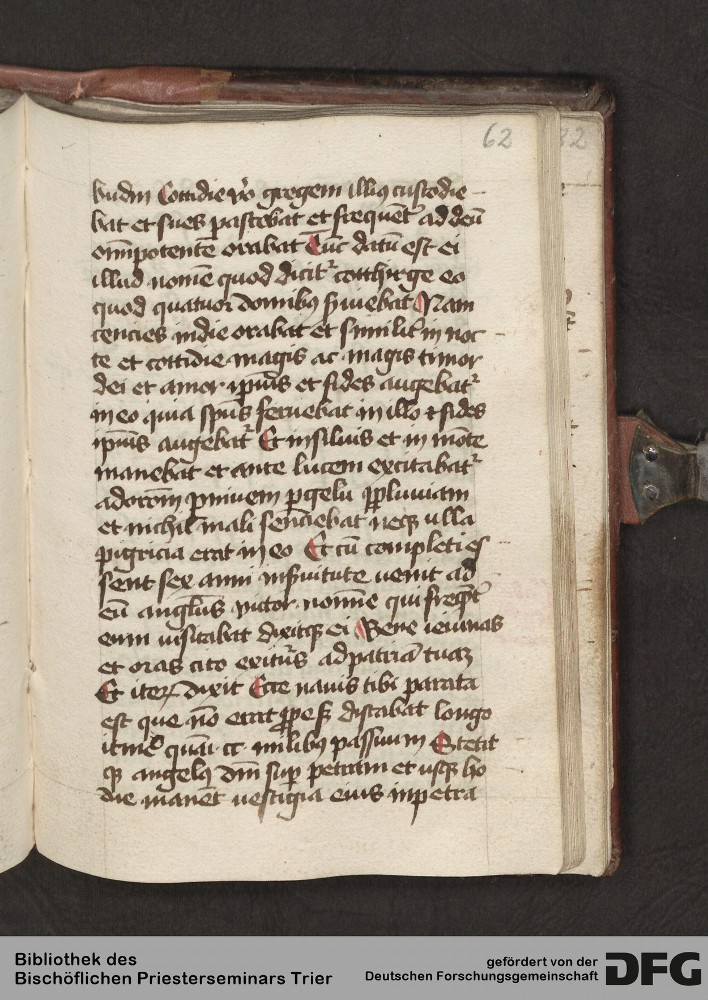 62
32
budin Cottidie v̾o gregem illiꝰ custodie
bat et sues pastebat et frequent̾ ad deū
omīpotentē orabat Tūc datū est ei
illud nomē quod dicit̾ cotthirge eo
quod quatuor domibꝰ ẜuiebat Nam
cencies indie orabat et similit̾ in noc
te et cottidie magis ac magis timor
dei et amor ip̄ius et fides augebat̾
in eo quia sp̄us feruebat in illo ⁊ fides
ip̄ius augebat̾ Et insiluis et in mōte
manebat et ante lucem excitabat̾
adorōm ꝑniuem ꝑgelu ꝑpluuiam
et nichil mali senciebat neqꝫ ulla
pigricia erat in eo Et cū completi es
sent sex anni inẜuitute uenit ad
eū angl̄us victor nomīe qui freqn̄t̾
eum uisitabat dixitqꝫ ei Bene ieiunas
et oras cito exitur̄s adpatriā tuaꝫ
Et iteꝝ dixit Ecce nauis tibi parata
est que nō erat ꝓpe sꝫ distabat longo
itinē quāi cc milibꝰ passuum Stetit
qꝫ angelꝰ dn̄i suꝑ petram et usqꝫ ho
die manēt uestigia eius inpetra
Bibliothek des
Bischöflichen Priesterseminars Trier
gefördert von der
Deutschen Forschungsgemeinschaft
DFG